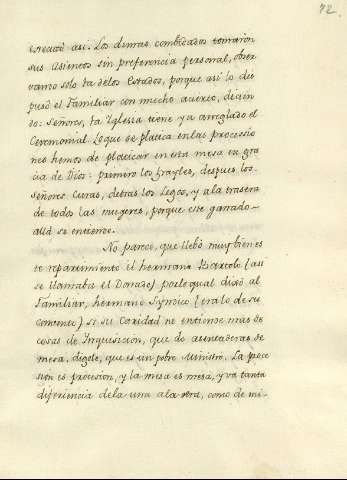 72.
executó asi. Los demas combidados tomaron
sus Asientos sin preferencia personal, obser
vamo solo la delos Estados, porque asi lo dis
puso el Familiar con mucho acierto, dicien
do: Señores, la Yglesia tiene ya arreglado el
Ceremonial. Loque se platica enlas processio
nes hemos de platicar en esta mesa en gra
cia de Dios: primero los frayles, despues los
Señores Curas, detras los Legos, y ala trasera
de todo las mugeres, porque este ganado
allá se entiende.
No parece, que llebó muy bien es
te repartimiento el hermano Bartolo (asi
se llamaba el Donado) porlo qual dixo al
Familiar, hermano Syndico (eralo de su
convento) si su Caridad no entiende mas de
cosas de Inquisicion, que de asentaderas de
mesa, digole, que es un pobre Ministro. La proce
sion es procesion, y la mesa es mesa, y va tanta
diferiencia dela una ala otra, como de mi-